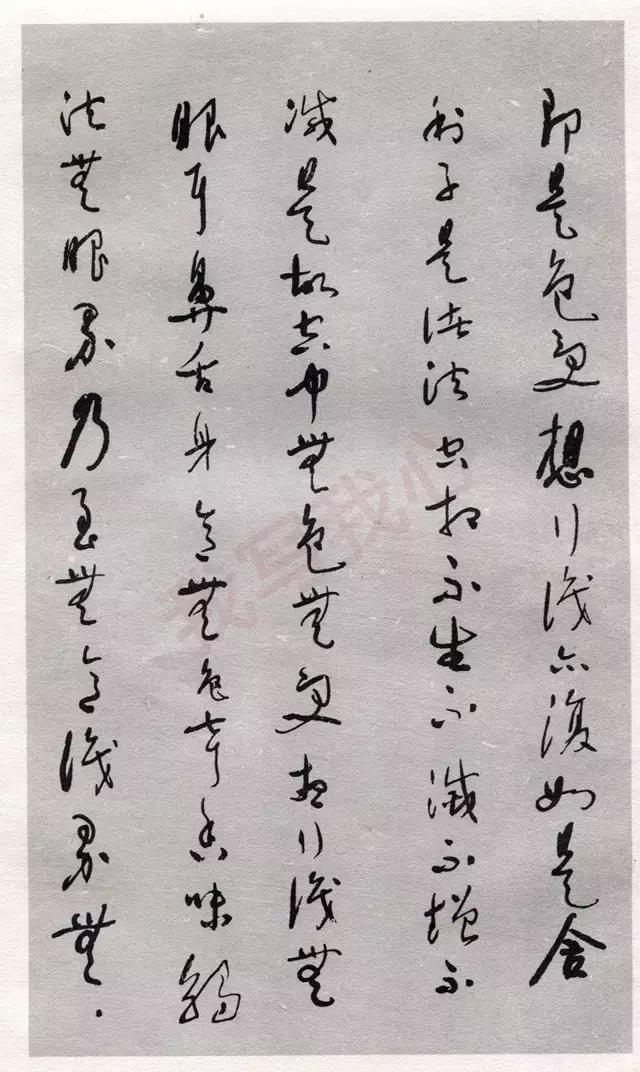 即是色受想行識亦復如是舍
利子是諸法空相不生不滅不增不
減是故空中無色無受想行識無
眼耳鼻舌身意無色聲香味觸
法無眼界乃至無意識界無·
我写我心